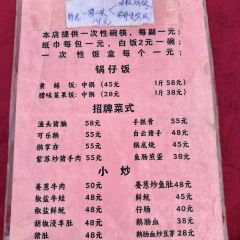 本店提供一次性碗筷，每副一元；
纸巾每包一元，白饭2元一碗；
一次性饭盒每个一元；
锅仔饭
黄鳝饭：中锅（45元） 1斤 58元
腊味菜果饭：中锅（28元） 1斤 38元
招牌菜式
渔头猪腩 55元 手抓骨 55元
可乐鹅 55元 白云猪手 48元
鹅掌亦 55元 锅底烧 45元
紫苏炒猪手肉 55元 鱼肠煎蛋 38元
小炒
姜葱牛肉 50元 姜葱炒鱼腩 48元
椒盐牛蛙 48元 鲜鱿 45元
椒盐鲜鱿 48元 仔肠 40元
胡椒浸羊肚 48元 鹅肠血 38元
猪肚 48元